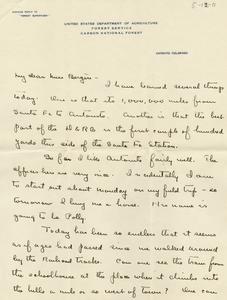 5-12-11
ADDRESS REPLY TO
"FOREST SUPERVISOR"
UNITED STATES DEPARTMENT OF AGRICULTURE
FOREST SERVICE
CARSON NATIONAL FOREST
ANTONITO COLORADO
My dear Miss Bergere -
I have learned several things
today. One is that its 1,000,000 miles from
Santa Fe to Antonito. Another is that the best
part of the D&RG is the first couple of hundred
yards this side of the Santa Fe Station.
So far I like Antonito fairly well. The
officers are very nice. Incidentally I am
to start out about Monday on my field trip - so
tomorrow I buy me a horse. His name is
going to be Polly.
Today has been so endless that it seems
as if ages had passed since we walked around
by the Railroad tracks. Can one see the train from
the schoolhouse at the place when it climbs into
the hills a mile or so west of town? One can